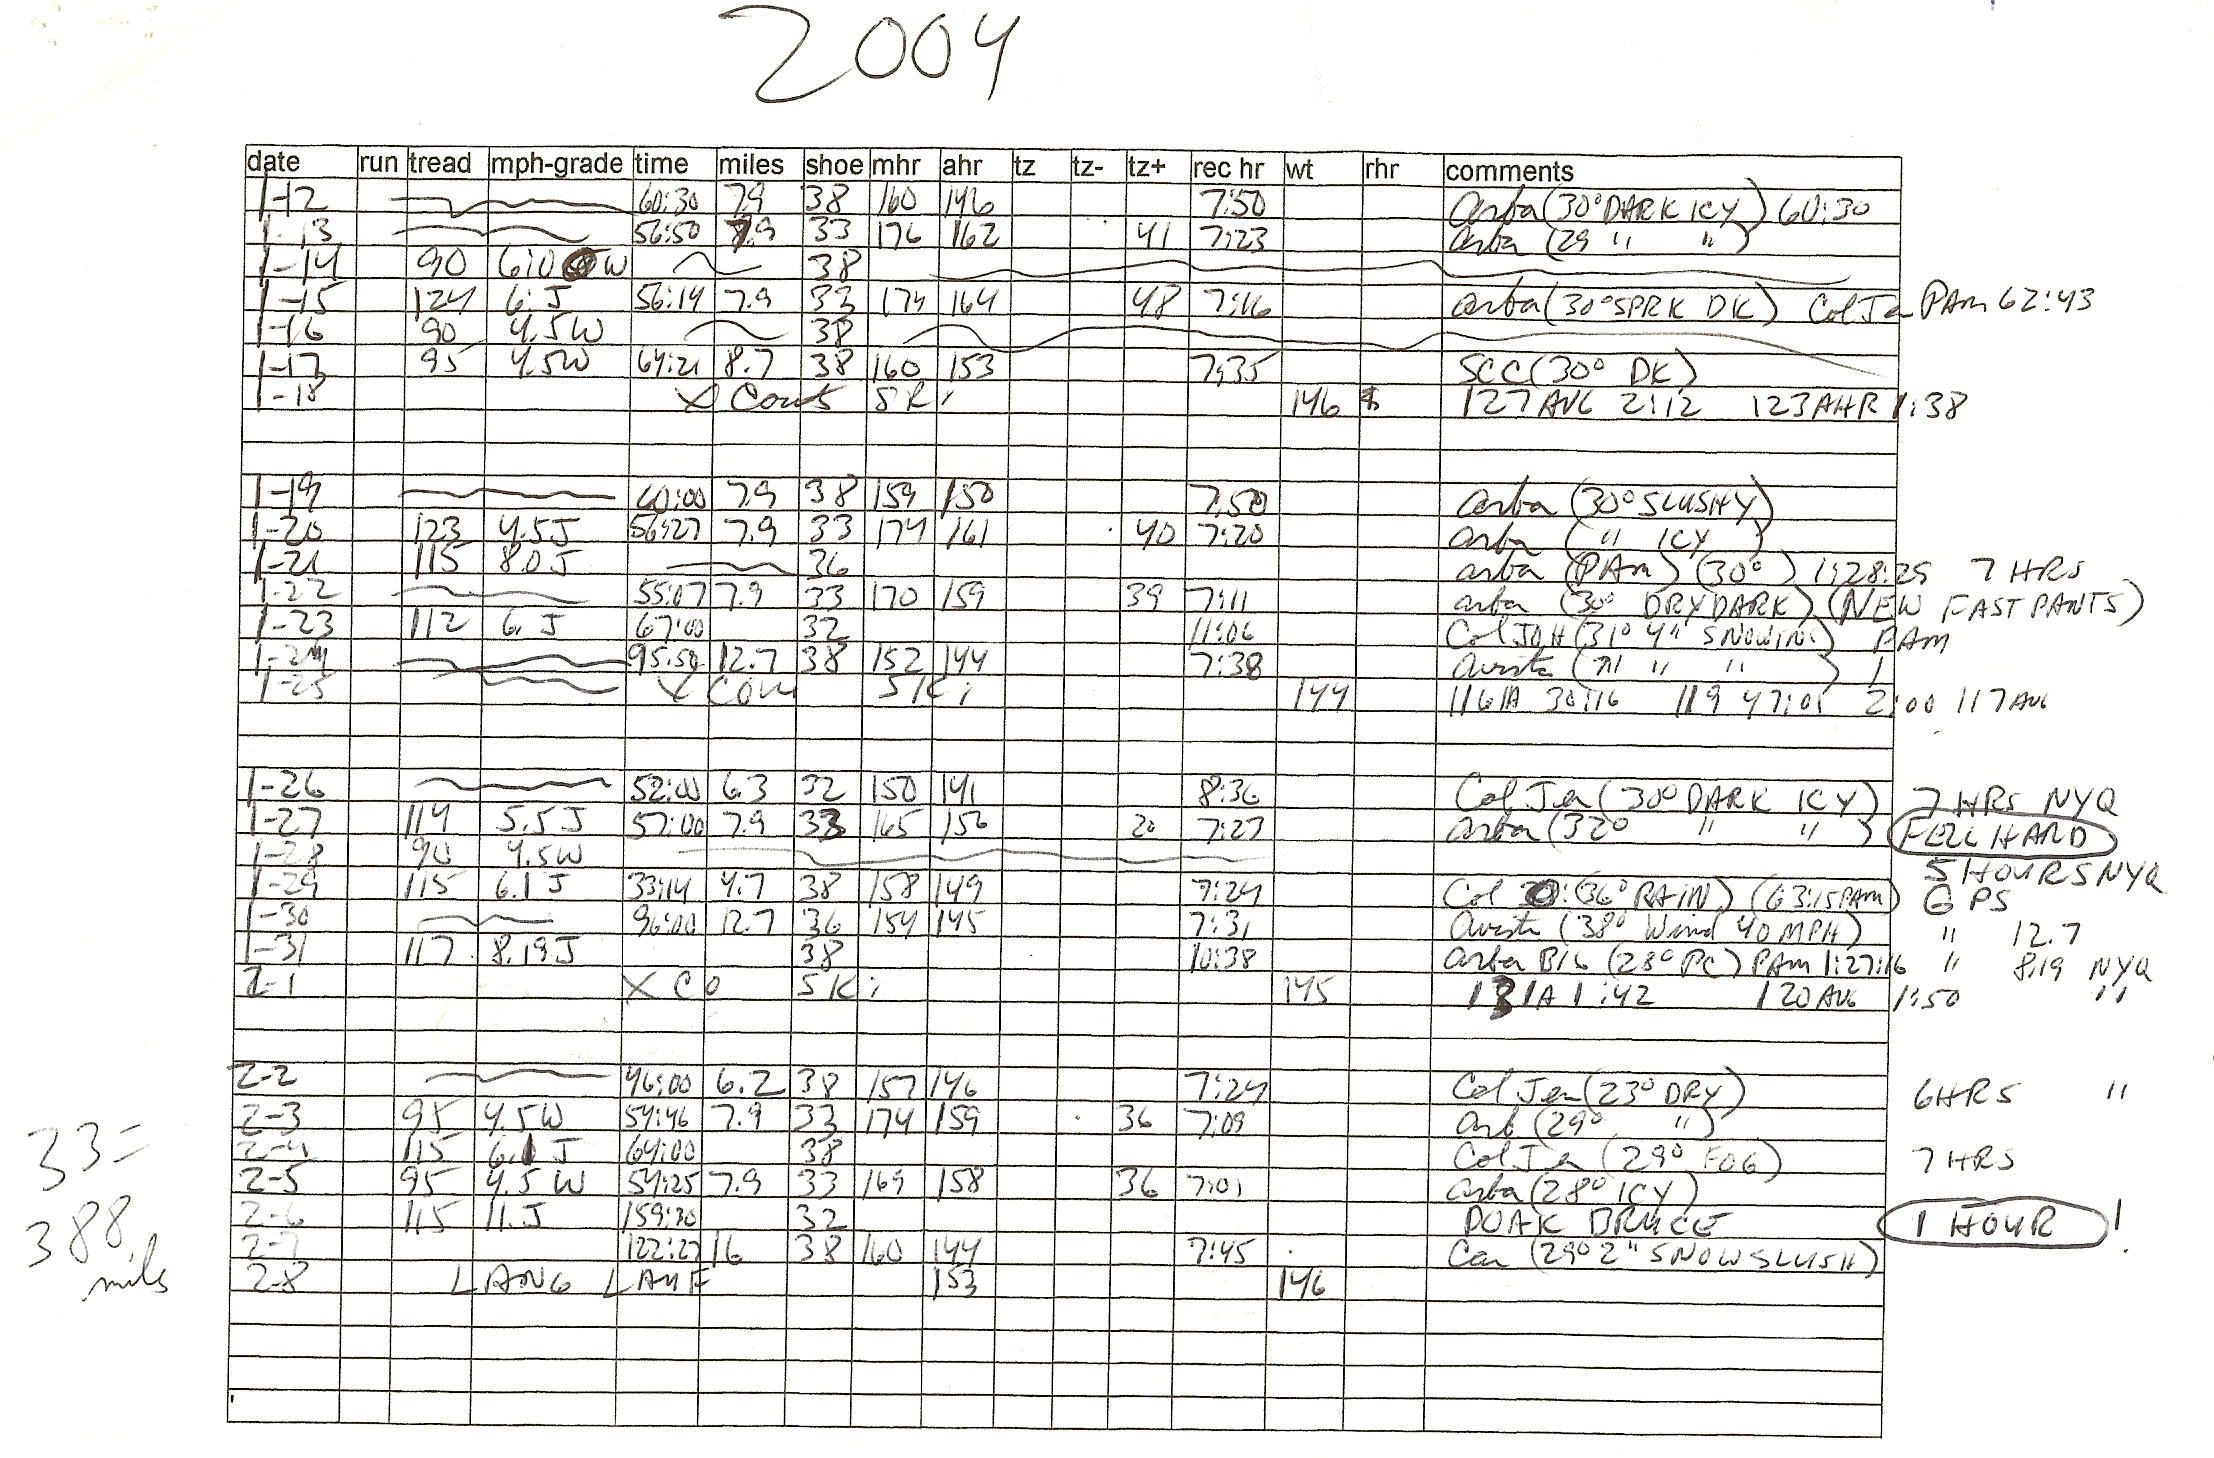 2004
date run tread mph-grade time miles shoe mhr ahr tz tz- tz+ rec hr wt rhr comments
1-12 60:30 7.9 38 160 146 7:50 arba (30° DARK ICY) 60:30
1-13 56:50 7.9 33 176 162 41 7:23 arba (29 " ")
1-14 90 6:0 W 38
1-15 124 6: J 56:14 7.9 33 174 164 48 7:16 arba (30° SPRK DK) Col Jen PAM 62:43
1-16 90 4.5W 38
1-17 95 4.5W 64:21 8.7 38 160 153 7:35 SCC (30° DK)
1-18 X Count SKi 146 127 AVG 2:12 123 AHR 1:38
1-19 60:00 7.9 38 159 150 7:50 arba (30° SLUSHY)
1-20 123 4.5J 56:27 7.9 33 174 161 40 7:20 arba ( " ICY )
1-21 115 8.0J 36 arba (PAM) (30°) 1:28:25 7 HRS
1-22 55:07 7.9 33 170 159 39 7:11 arba (30° DRY DARK) (NEW FAST PANTS)
1-23 112 6. J 67:00 32 11:06 Col JOH (31° 4" SNOWING) PAM
1-24 95:50 12.7 38 152 144 7:38 Avista ( " " )
1-25 X Coun SKi 144 116 A 30:16 119 47:01 2:00 117 AVG
1-26 52:00 6.3 32 150 141 8:36 Col Jen (30° DARK ICY) 7 HRS NYQ
1-27 114 5.5J 57:00 7.9 33 165 156 20 7:27 arba (32° " ") FELL HARD
1-28 90 4.5W 5 HOURS NYQ
1-29 115 6.1J 33:14 4.7 38 158 149 7:24 Col (36° RAIN) (63:15 PAM) GPS
1-30 96:00 12.7 36 154 145 7:31 Avista (38° Wind 40 MPH) " 12.7
1-31 117 8.19J 38 10:38 arba BIG (28° PC) PAM 1:27:16 " 8.19 NYQ
2-1 X CO SKi 145 131A 1:42 120 AVG 1:50 "
2-2 46:00 6.2 38 157 146 7:24 Col Jen (23° DRY) 6 HRS "
2-3 95 4.5W 54:46 7.9 33 174 159 36 7:09 Arb (29° ")
2-4 115 6.1 J 64:00 38 Col Jen (29° FOG) 7 HRS
2-5 95 4.5W 54:25 7.9 33 169 158 36 7:01 arba (28° ICY)
2-6 115 11. J 159:30 32 DOAK BRUCE 1 HOUR !
2-7 122:27 16 38 160 144 7:45 Can (29° 2" SNOW SLUSH)
2-8 LANG LAUF 153 146
33=
388.
mils